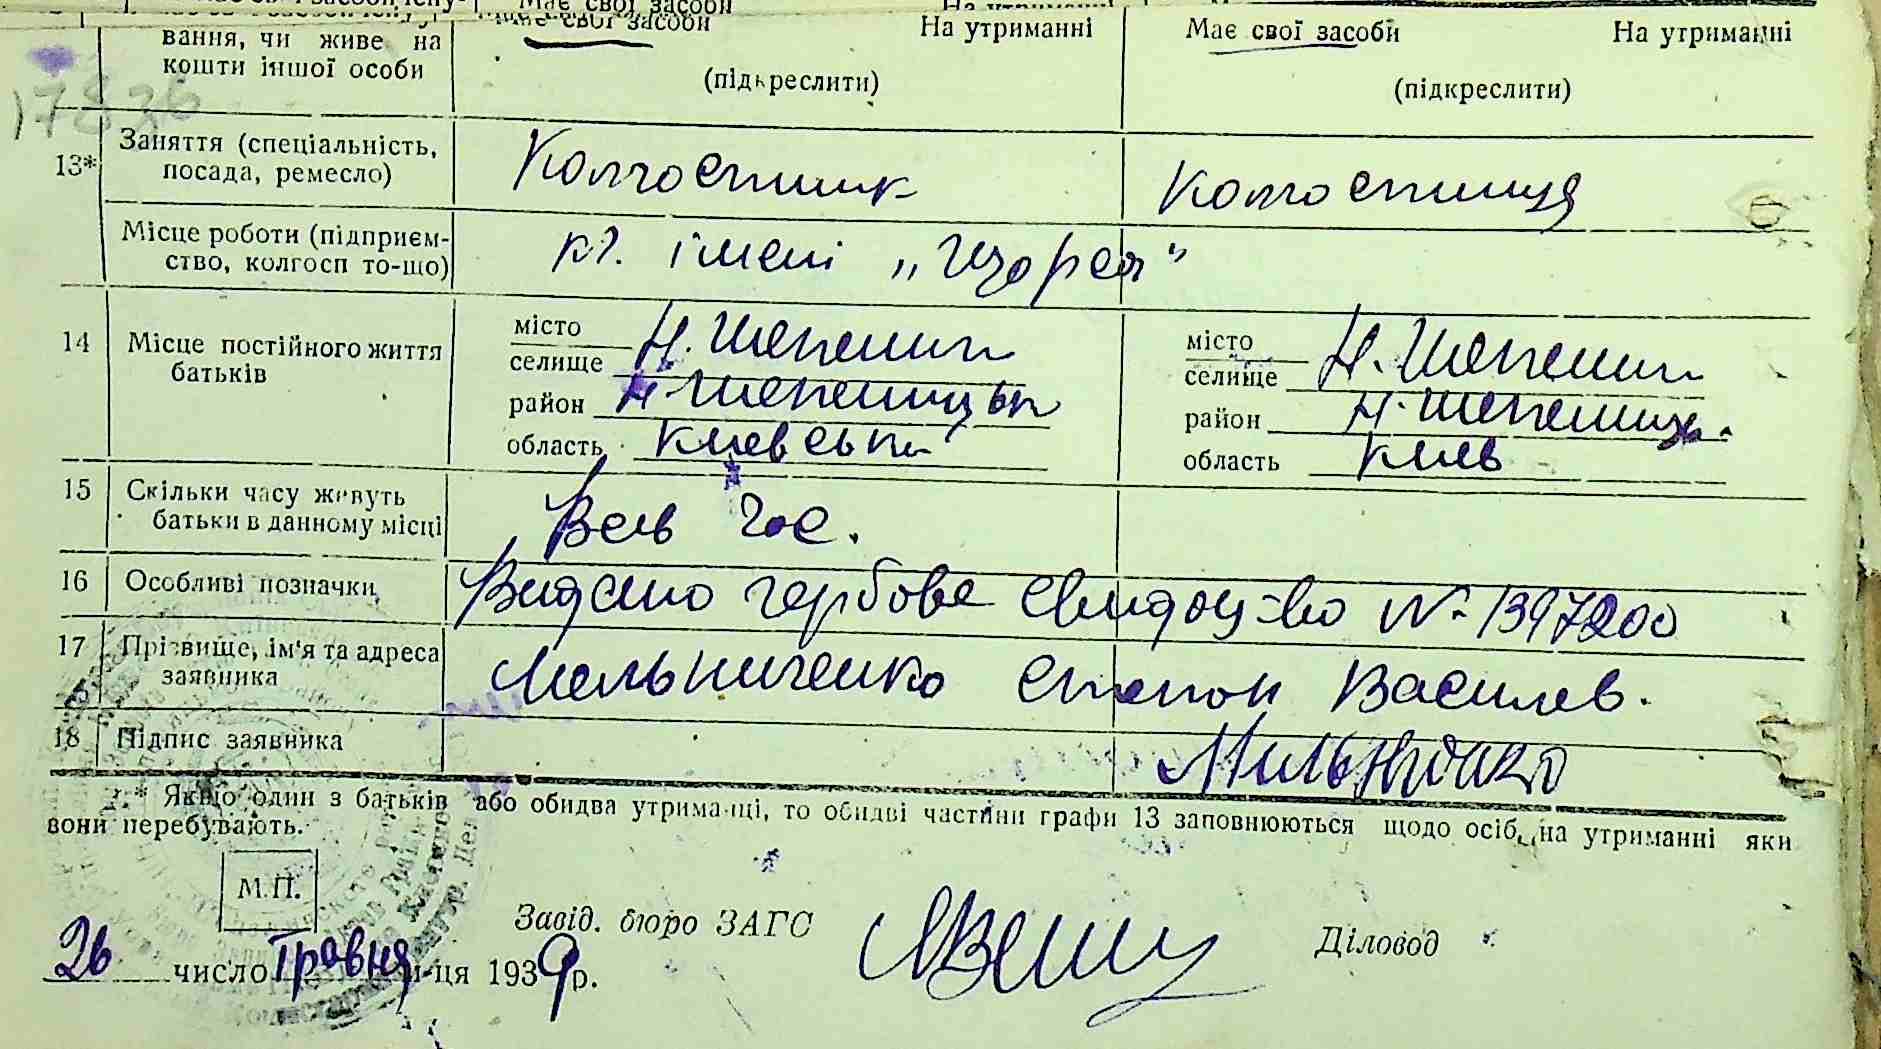 Має свої засоби На утриманні Має свої засоби На утриманні
вання, чи живе на
кошти іншої особи
(підкреслити) (підкреслити)
17826
13* Заняття (спеціальність, посада, ремесло) Колгоспник Колгоспниця
Місце роботи (підприєм-
ство, колгосп то-що) кг. імені „Щорса"
14 Місце постійного життя батьків
місто
селище Н. Шепелич
район Н. Шепелицьк
область Киевськ
місто
селище Н. Шепелич
район Н. Шепелиць.
область Киев
15 Скільки часу живуть
батьки в данному місці Весь час.
16 Особливі позначки Видано гербове свидоц-во № 1397200
17 Прізвище, ім'я та адреса
заявника Мельниченко Степан Василев.
18 Підпис заявника
* Якщо один з батьків або обидва утриманці, то обидві частини графи 13 заповнюються щодо осіб, на утриманні яки
вони перебувають.
М.П.
Завід. бюро ЗАГС Діловод
26 число Травня м-ця 1939 р.